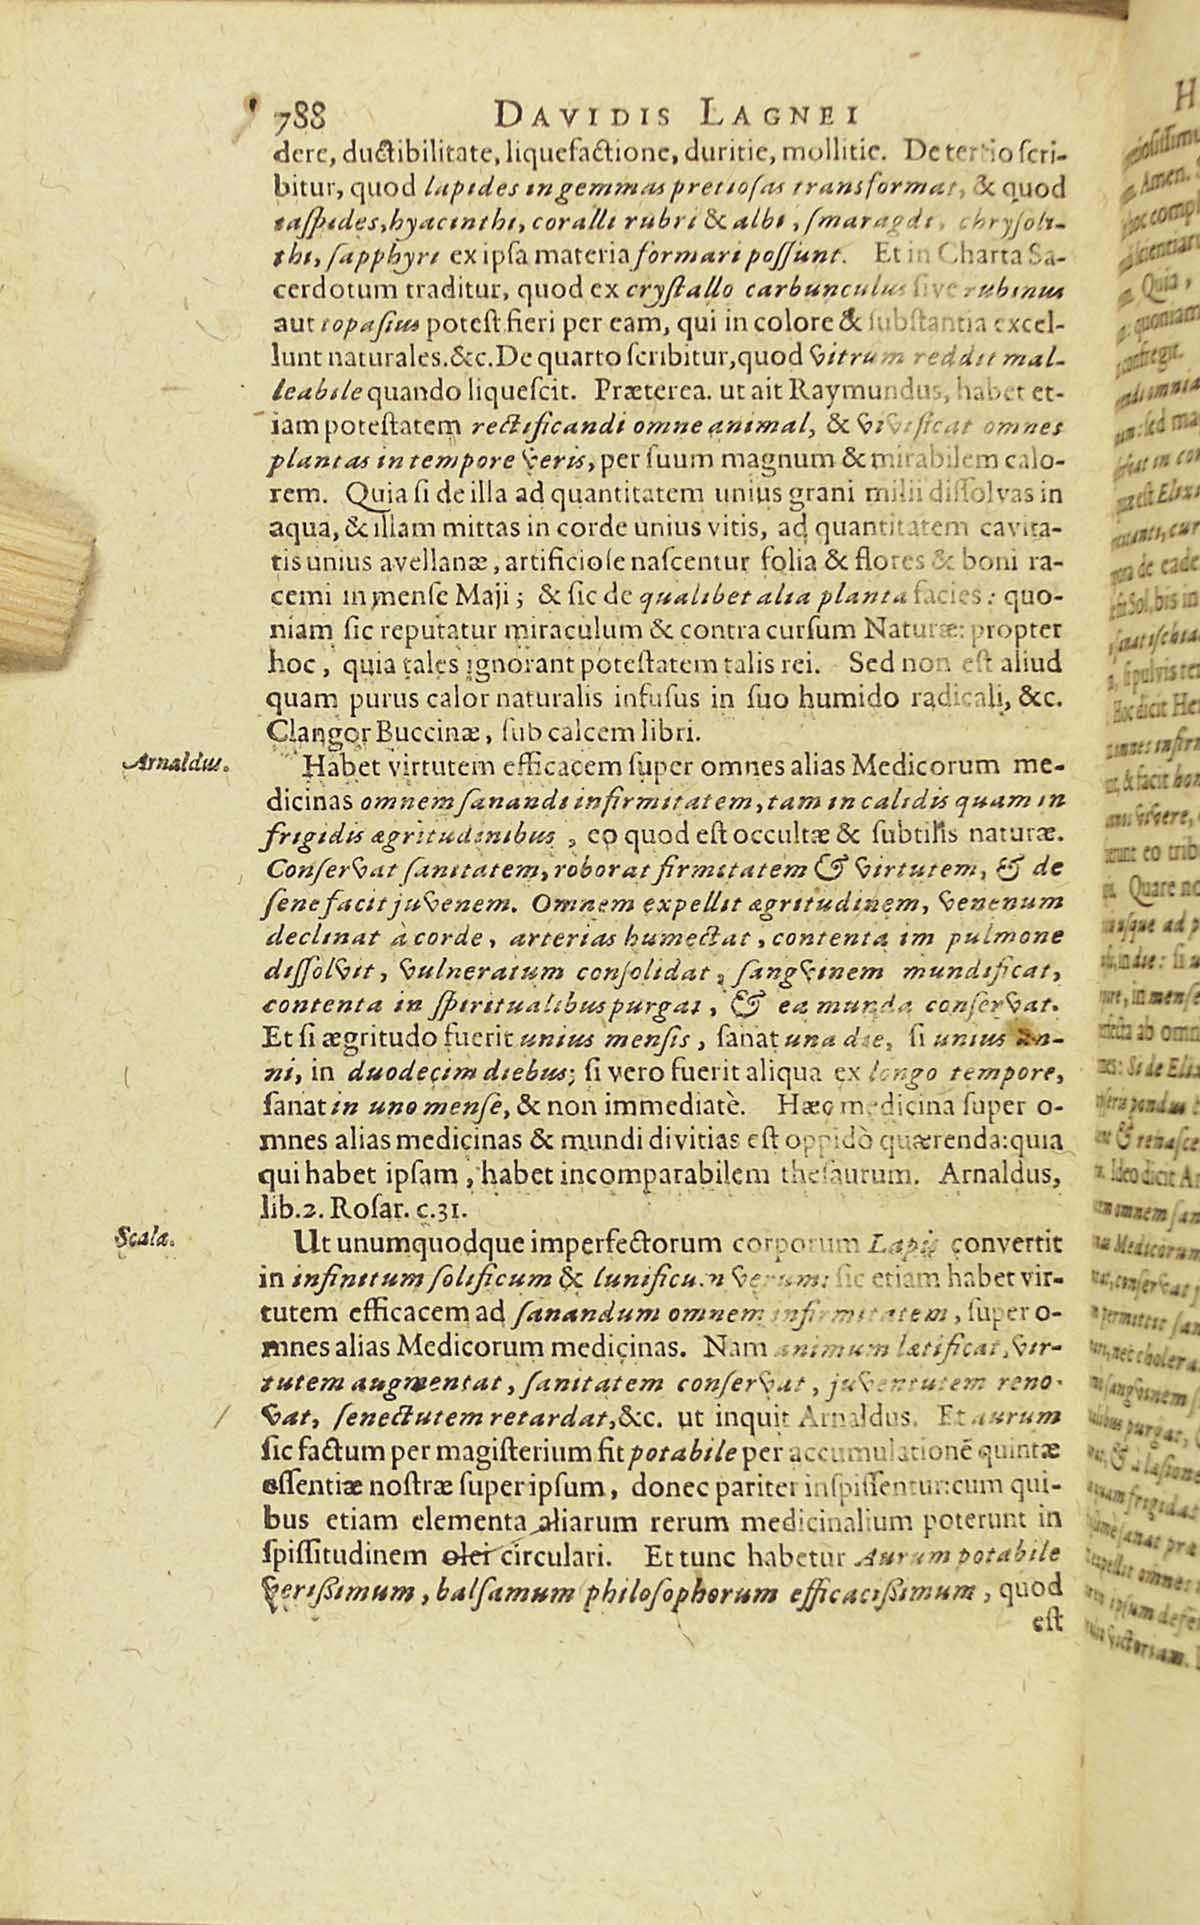 788 DAVIDIS LAGNEI
dere, ductibilitate, liquefactione, duritie, mollitie. De tertio scri-
bitur, quod lapides in gemmas pretiosas transformat, & quod
iaspides, hyacinthi, coralli rubri & albi, smaragdi, chrysoli-
thi, sapphyri ex ipsa materia formari possunt. Et in Charta Sa-
cerdotum traditur, quod ex crystallo carbunculus sive rubinus
aut topasius potest fieri per eam, qui in colore & substantia excel-
lunt naturales. &c. De quarto scribitur, quod vitrum reddit mal-
leabile quando liquescit. Præterea. ut ait Raymundus, habet et-
iam potestatem rectificandi omne animal, & vivificat omnes
plantas in tempore veris, per suum magnum & mirabilem calo-
rem. Quia si de illa ad quantitatem unius grani milii dissolvas in
aqua, & illam mittas in corde unius vitis, ad quantitatem cavita-
tis unius avellanæ, artificiose nascentur folia & flores & boni ra-
cemi in mense Maji; & sic de qualibet alia planta facies: quo-
niam sic reputatur miraculum & contra cursum Naturæ: propter
hoc, quia tales ignorant potestatem talis rei. Sed non est aliud
quam purus calor naturalis infusus in suo humido radicali, &c.
Clangor Buccinæ, sub calcem libri.
Arnaldus. Habet virtutem efficacem super omnes alias Medicorum me-
dicinas omnem sanandi infirmitatem, tam in calidis quam in
frigidis ægritudinibus, eo quod est occultæ & subtilis naturæ.
Conservat sanitatem, roborat firmitatem & virtutem, & de
sene facit juvenem. Omnem expellit ægritudinem, venenum
declinat à corde, arterias humectat, contenta im pulmone
dissolvit, vulneratum consolidat, sangvinem mundificat,
contenta in spiritualibus purgat, & ea munda conservat.
Et si ægritudo fuerit unius mensis, sanat una die, si unius an-
ni, in duodecim diebus; si vero fuerit aliqua ex longo tempore,
sanat in uno mense, & non immediatè. Hæc medicina super o-
mnes alias medicinas & mundi divitias est oppidò quærenda: quia
qui habet ipsam, habet incomparabilem thesaurum. Arnaldus,
lib. 2. Rosar. c. 31.
Scala. Ut unumquodque imperfectorum corporum Lapis convertit
in infinitum solificum & lunificum verum: sic etiam habet vir-
tutem efficacem ad sanandum omnem infirmitatem, super o-
mnes alias Medicorum medicinas. Nam animum lætificat, vir-
tutem augmentat, sanitatem conservat, juventutem reno-
vat, senectutem retardat, &c. ut inquit Arnaldus. Et aurum
sic factum per magisterium fit potabile per accumulationē quintæ
essentiæ nostræ super ipsum, donec pariter inspissentur: cum qui-
bus etiam elementa aliarum rerum medicinalium poterunt in
spissitudinem olei circulari. Et tunc habetur Aurum potabile
verissimum, balsamum philosophorum efficacissimum, quod
est